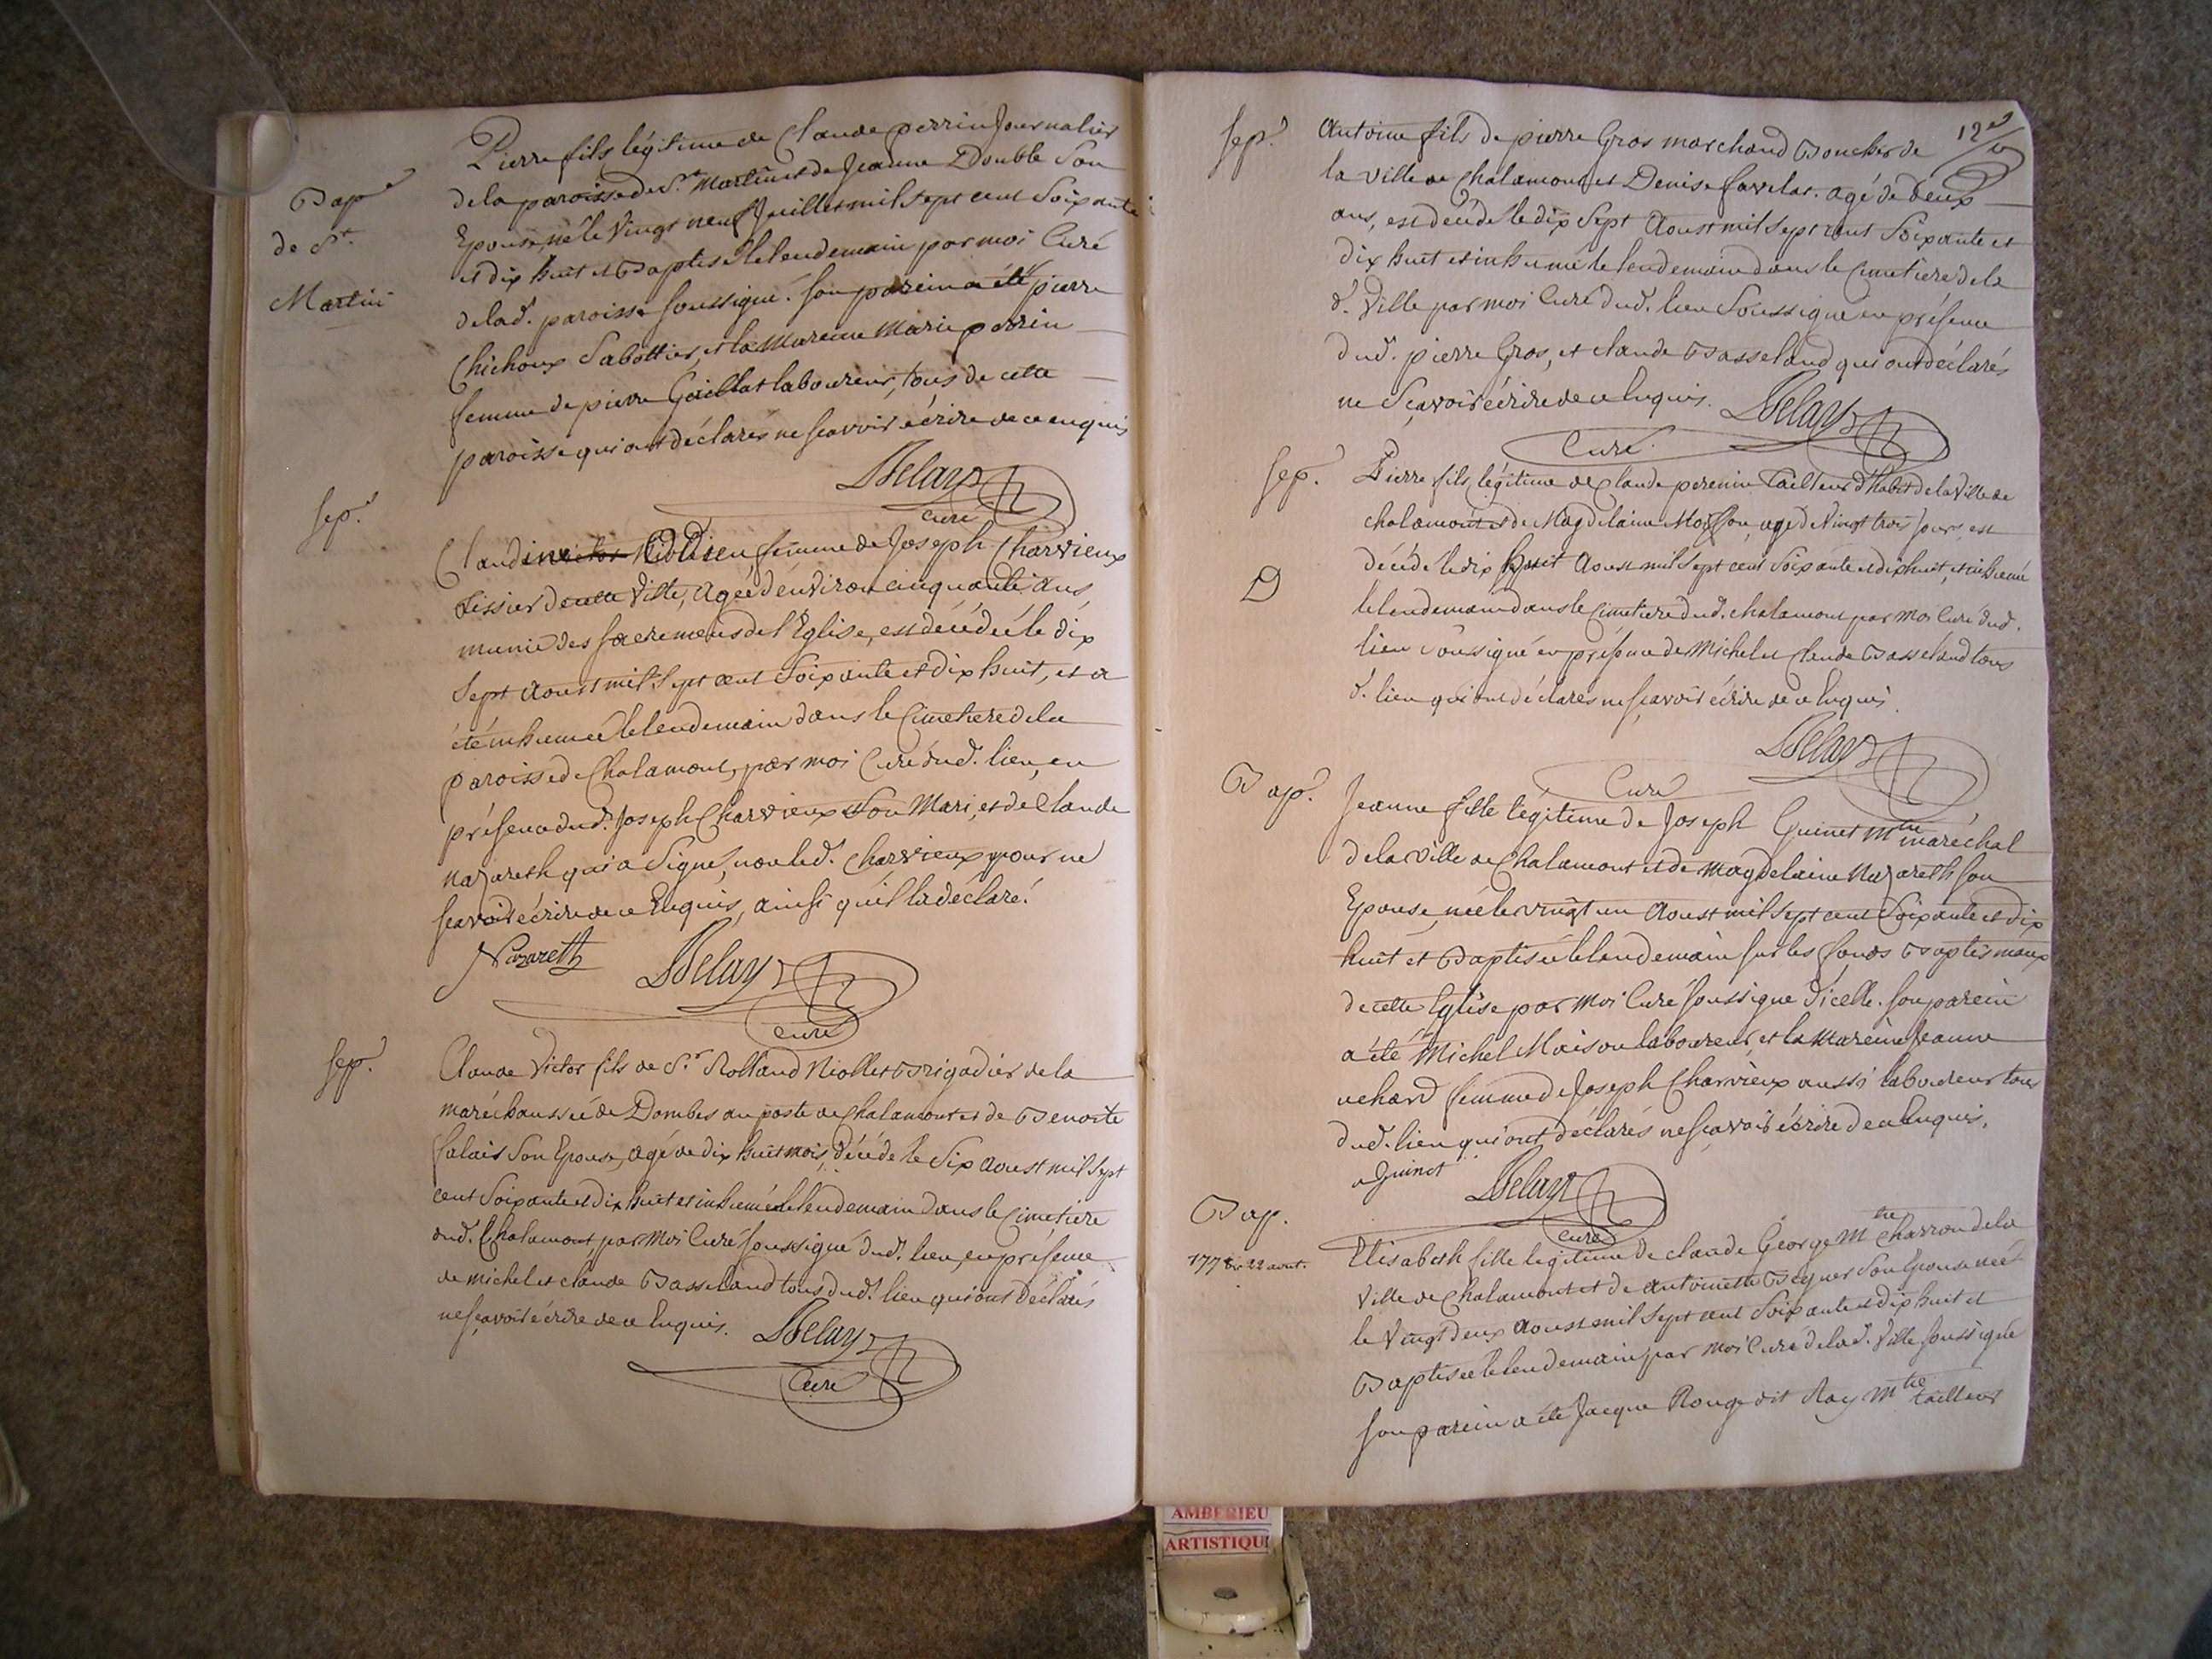 Bap.
de St.
Martin
Pierre fils légitime de Claude perrin Journalier
de la paroisse de St. Martin et de Jeanne Double Son
Epouse, né le Vingt neuf Juillet mil sept cent Soixante
et dix huit et Baptisé le lendemain par moi Curé
de lad. paroisse soussigné. Son parein a été pierre
Chichoux Sabottier, et la Mareine Marie perrin
femme de pierre Gaillat laboureur, tous de cette
paroisse qui ont déclarés ne scavoir écrire de ce enquis
Delay
Curé
Sep.
Claudine femme de Joseph Charvieux
tissier de cette Ville, agée d'environ cinquante ans
munie des sacremens de l'Eglise, est décédée le dix
Sept Aoust mil Sept cent Soixante et dix huit, et a
été inhumée le lendemain dans le Cimetiere de la
paroisse de Chalamont, par moi Curé dud. lieu, en
présence dud. Joseph Charvieux Son Mari, et de Claude
Nazareth qui a Signé, non led. Charvieux pour ne
scavoir écrire de ce Enquis, ainsi qu'il l'a déclaré.
Nazareth Delay
Curé
Sep.
Claude Victor fils de Sr. Rolland Niollet Brigadier de la
maréchaussée de Dombes au poste de Chalamont et de Benoite
falais Son Epouse, agé de dix huit mois, décédé le Six Aoust mil Sept
cent Soixante et dix huit et inhumé le lendemain dans le Cimetiere
dud. Chalamont, par Moi Curé soussigné dud. lieu, en présence
de michel et claude Basseland tous dud. lieu qui ont déclarés
ne sçavoir écrire de ce Enquis. Delay
Curé
12e
Sep.
Antoine fils de pierre Gros marchand Boucher de
la ville de Chalamont et Denise favelas. agé de deux
ans, est décédé le dix Sept Aoust mil Sept cent Soixante et
dix huit et inhumé le lendemain dans le Cimetiere de la
d. Ville par moi Curé dud. lieu Soussigné en présence
dud. pierre Gros, et claude Basseland qui ont déclarés
ne Sçavoir écrire de ce Enquis. Delay
Curé
Sep.
D
Pierre fils légitime de Claude perenin Tailleur d'habit de la Ville de
chalamont et de Magdelaine agé de Vingt trois Jours, est
décédé le dix huit Aoust mil Sept cent Soixante et dix huit, et inhumé
le lendemain dans le Cimetiere dud. chalamont par Moi Curé dud.
lieu Soussigné en présence de Michel et Claude Basseland tous
d. lieu qui ont déclarés ne sçavoir écrire de ce Enquis.
Delay
Curé
Bap.
Jeanne fille légitime de Joseph Guinet Mtre maréchal
de la Ville de Chalamont et de Magdelaine Nazareth son
Epouse, née le vingt un Aoust mil Sept cent Soixante et dix
huit et Baptisée le lendemain sur les fonds Baptismaux
de cette Eglise par Moi Curé soussigné d'icelle. son parein
a été Michel Maison laboureur, et la Mareine Jeanne
femme de Joseph Charvieux aussi laboureur tous
dud. lieu qui ont déclarés ne sçavoir écrire de ce Enquis.
Guinet Delay
Curé
Bap.
1778 22 aout.
Elisabeth fille légitime de claude George Mtre charron de la
Ville de Chalamont et de Antoinette Son Epouse née
le Vingt deux Aoust mil Sept cent Soixante et dix huit et
Baptisée le lendemain par Moi Curé de lad. Ville soussigné
son parein a été Jacque Rouge dit Ray Mtre tailleur
AMBERIEU
ARTISTIQU